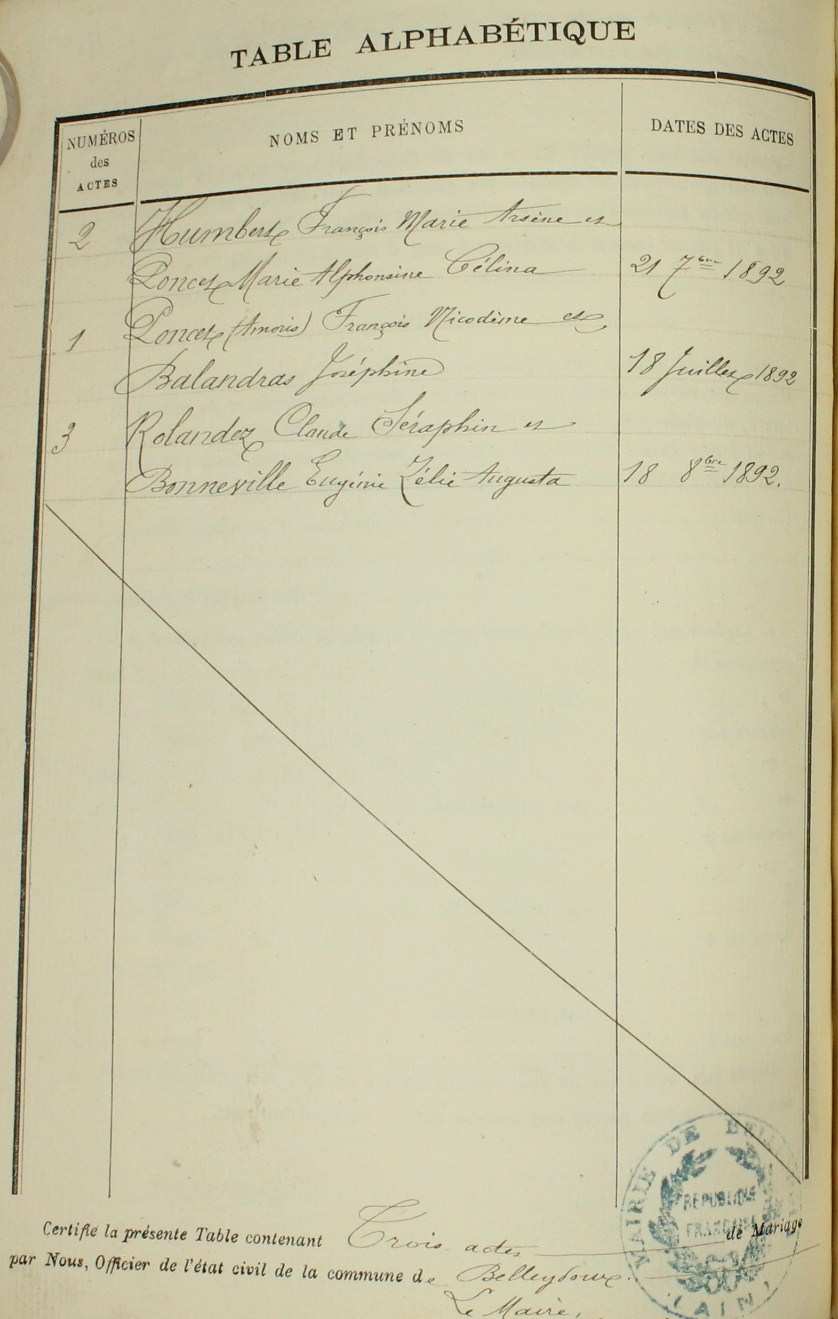 TABLE ALPHABÉTIQUE
NUMÉROS des ACTES
NOMS ET PRÉNOMS
DATES DES ACTES
2 Humbert François Marie Arsène et
Poncet Marie Alphonsine Célina 21 7bre 1892
1 Poncet (Amoris) François Nicodème et
Balandras Joséphine 18 Juillet 1892
3 Rolandez Claude Séraphin et
Bonneville Eugénie Zélie Augusta 18 8bre 1892.
Certifie la présente Table contenant Trois actes de Mariage
par Nous, Officier de l'état civil de la commune de Belleydoux.
Le Maire,
MAIRIE DE
RÉPUBLIQUE
FRANÇAISE
(AIN)